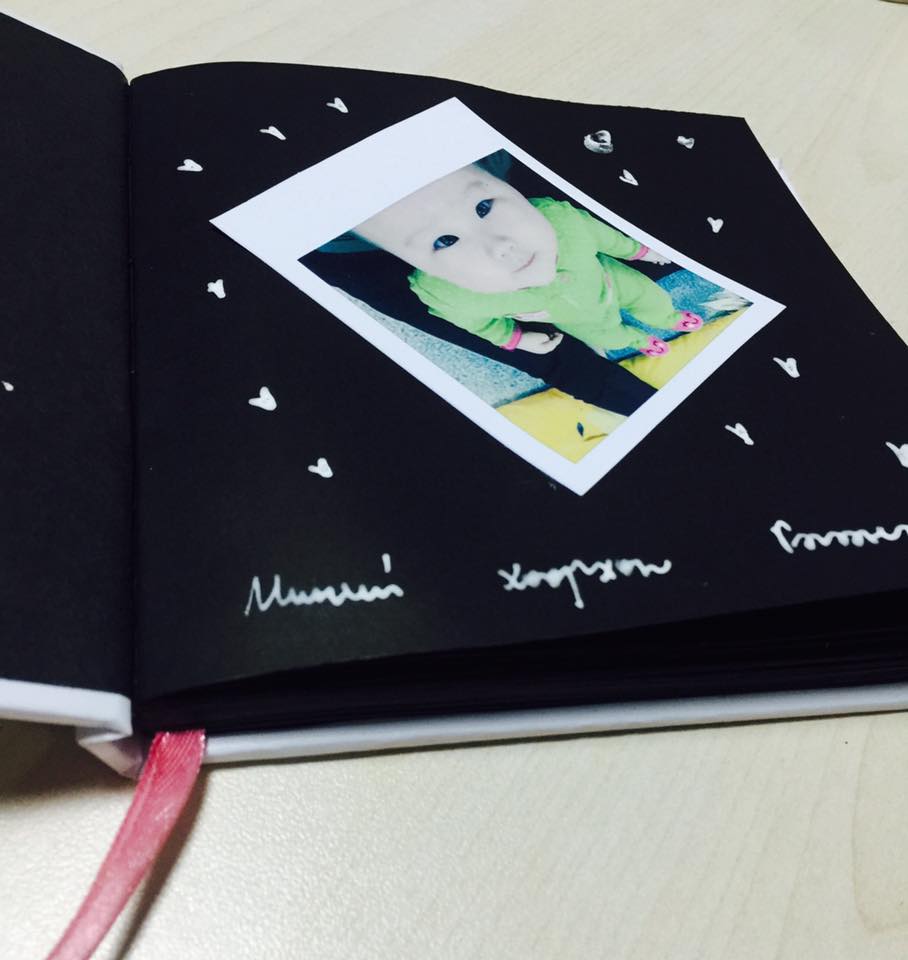 Миний хөөрхөн